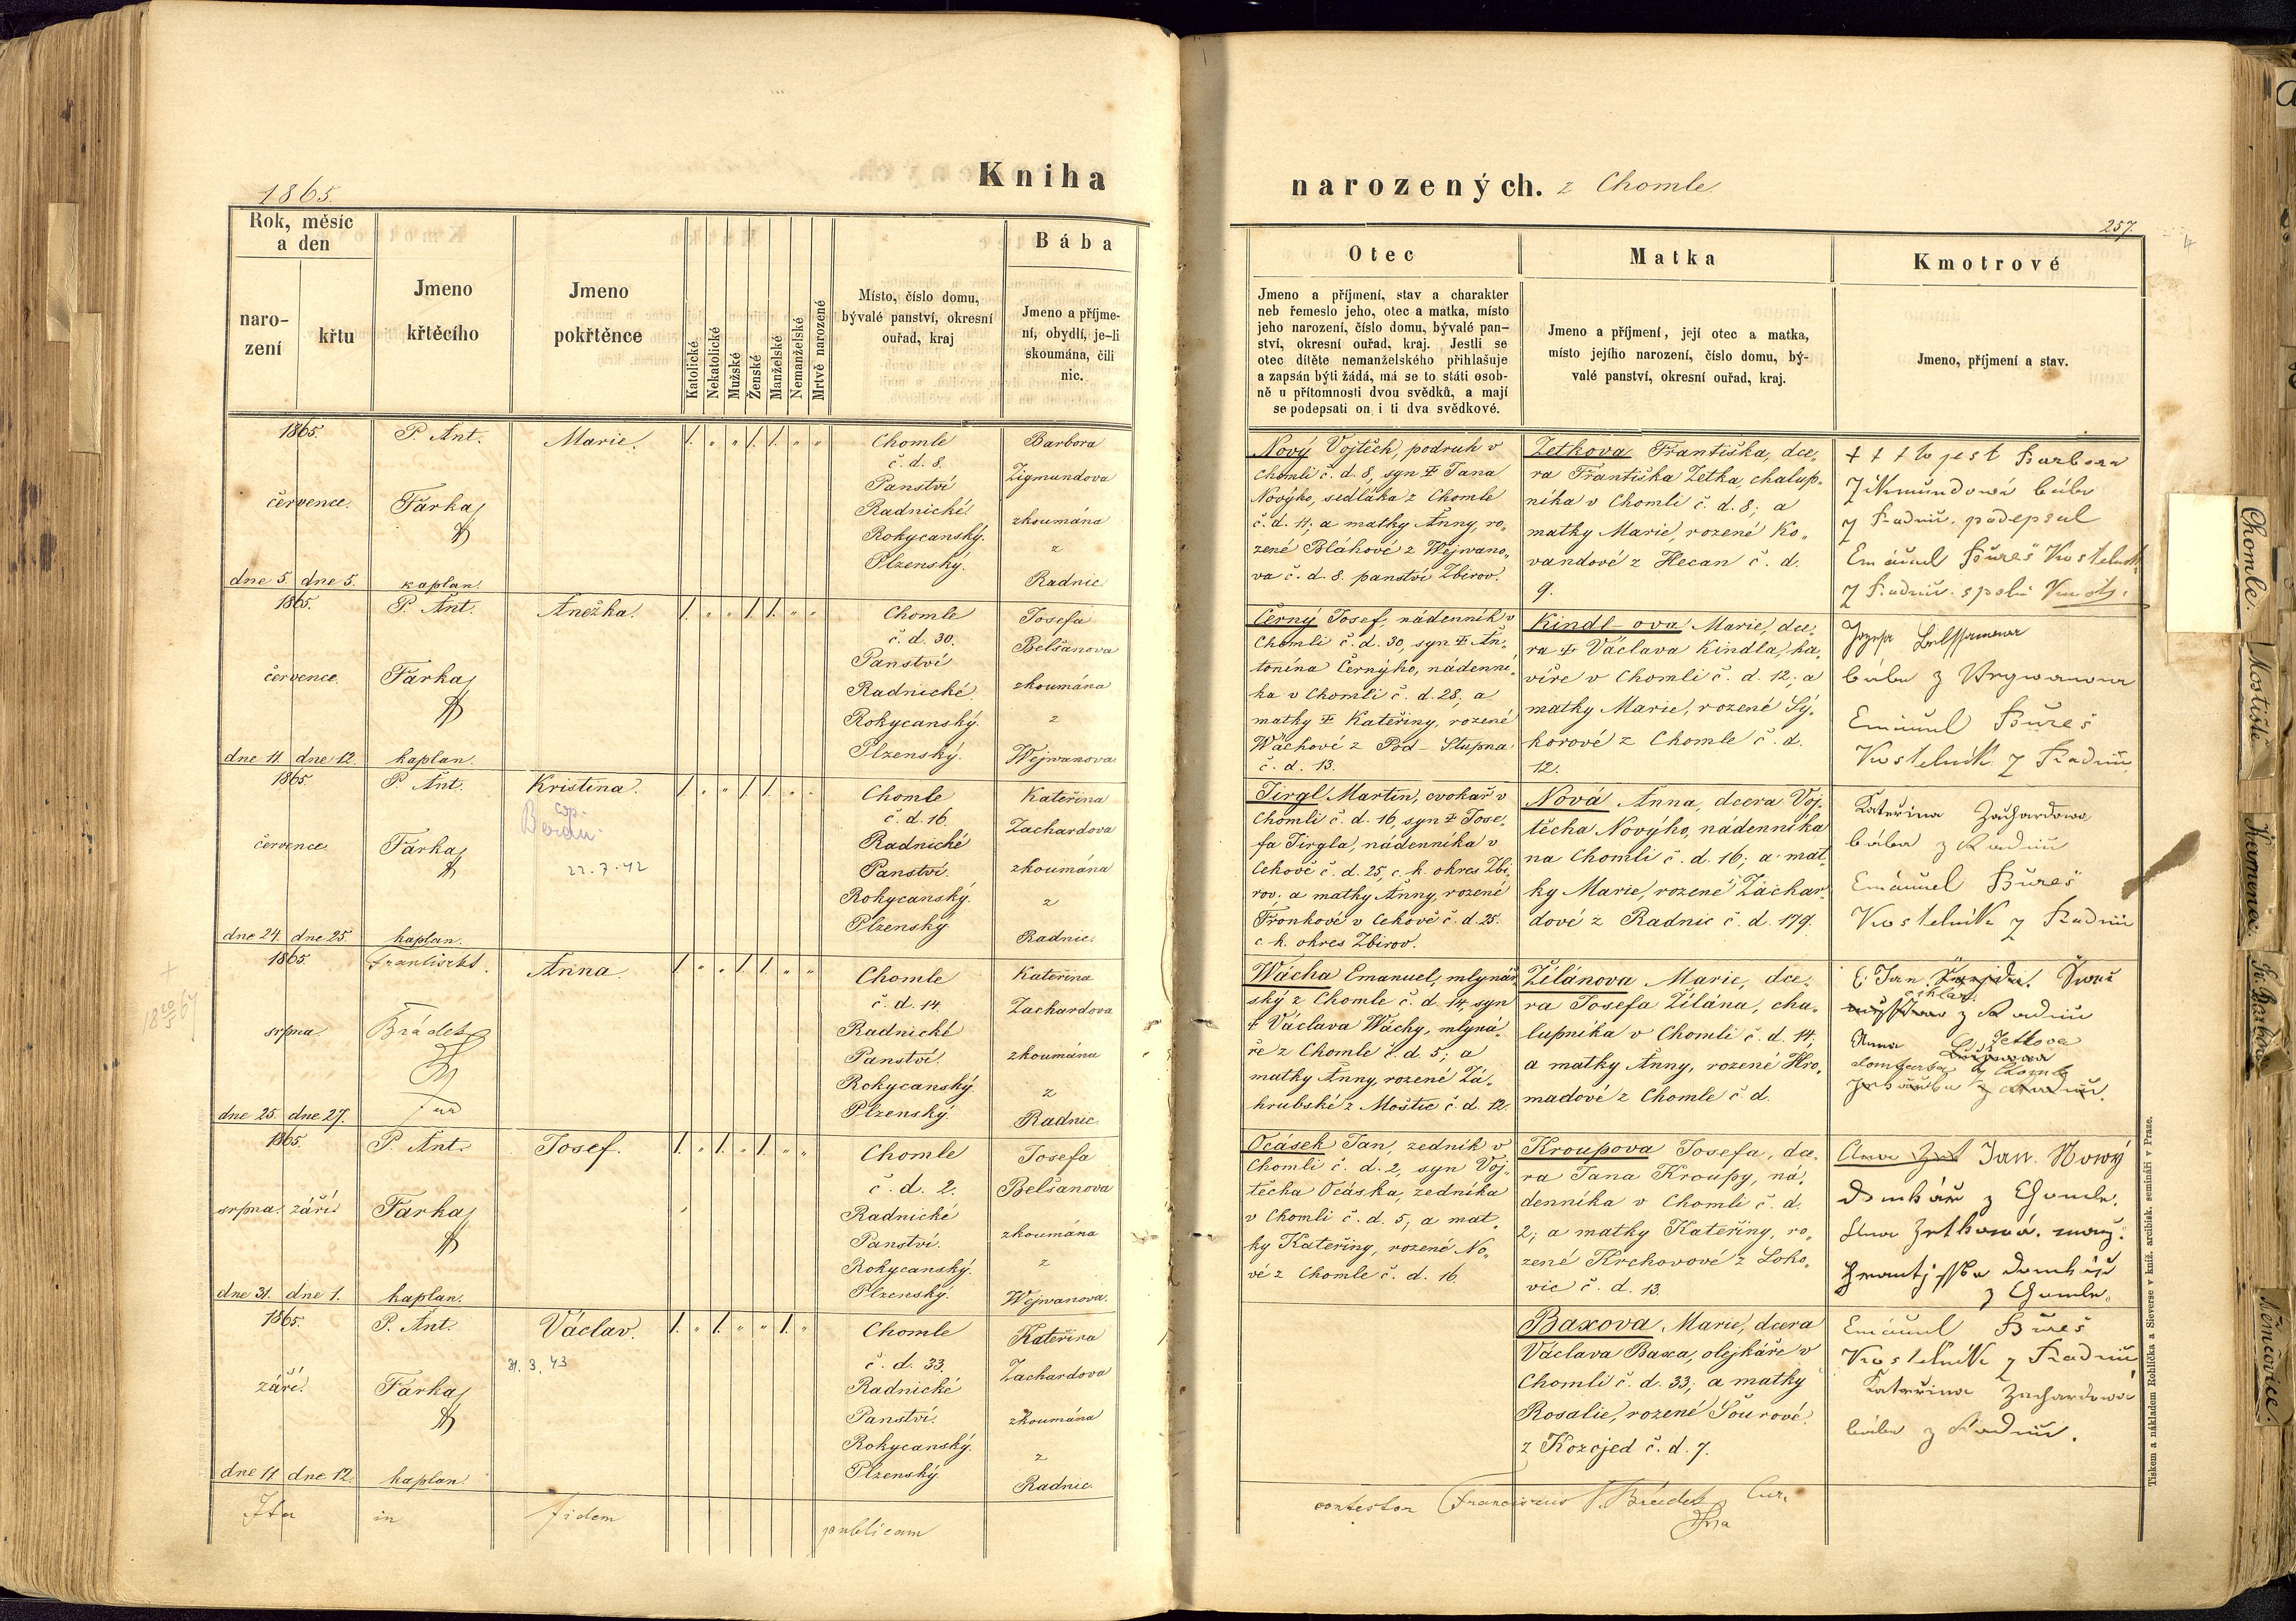 Kniha
narozených. z Chomle
1865.
257.
4
Rok, měsíc
a den
naro-
zení
křtu
Jmeno
křtěcího
Jmeno
pokřtěnce
Katolické
Nekatolické
Mužské
Ženské
Manželské
Nemanželské
Mrtvě narozené
Místo, číslo domu,
bývalé panství, okresní
ouřad, kraj
Bába
Jmeno a příjme-
ní, obydlí, je-li
skoumána, čili
nic.
Otec
Jmeno a příjmení, stav a charakter
neb řemeslo jeho, otec a matka, místo
jeho narození, číslo domu, bývalé pan-
ství, okresní ouřad, kraj. Jestli se
otec dítěte nemanželského přihlašuje
a zapsán býti žádá, má se to státi osob-
ně u přítomnosti dvou svědků, a mají
se podepsati on i ti dva svědkové.
Matka
Jmeno a příjmení, její otec a matka,
místo jejího narození, číslo domu, bý-
valé panství, okresní ouřad, kraj.
Kmotrové
Jmeno, příjmení a stav.
1865.
července.
dne 5. dne 5.
P. Ant.
Farka
kaplan.
Marie.
1. „ „ 1. 1. „ „
Chomle
č. d. 8.
Panství
Radnické
Rokycanský.
Plzenský.
Barbora
Zigmundova
zkoumána
z
Radnic
Nový Vojtěch, podruh v
Chomli č. d. 8, syn ‡ Jana
Nového, sedláka z Chomle
č. d. 11; a matky Anny, ro„
zené Bláhové z Wejwano„
va č. d. 8. panství Zbirov.
Zetkova Františka, dce„
ra Františka Zetka, chalup„
níka v Chomli č. d. 8; a
matky Marie, rozené Ko„
vandové z Hecan č. d.
9.
+ + + to jest Barbora
Zikmundová bába
z Radnic. podepsal
Emanuel Bureš Kostelník
z Radnic. spolu Kmotr.
1865.
července.
dne 11. dne 12.
P. Ant.
Farka
kaplan.
Anežka.
1. „ „ 1. 1. „ „
Chomle
č. d. 30.
Panství
Radnické
Rokycanský.
Plzenský.
Josefa
Belšanova
zkoumána
z
Wejwanova
Černý Josef, nádenník v
Chomli č. d. 30, syn ‡ An„
tonína Černýho, nádenní„
ka v Chomli č. d. 28; a
matky ‡ Kateřiny, rozené
Wáchové z Pod-Stupna
č. d. 13.
Kindl-ova Marie, dce„
ra ‡ Václava Kindla, ha„
víře v Chomli č. d. 12; a
matky Marie, rozené Sý„
korové z Chomle č. d.
12.
bába z
Emanuel Bureš
Kostelník z Radnic
1865.
července
dne 24. dne 25.
P. Ant.
Farka
kaplan.
Kristina.
cop.
22. 7. 42
1. „ „ 1. 1. „ „
Chomle
č. d. 16.
Radnické
Panství.
Rokycanský.
Plzenský
Kateřina
Zachardova
zkoumána
z
Radnic.
Tirgl Martin, cvokař v
Chomli č. d. 16, syn ‡ Jose„
fa Tirgla, nádenníka v
Cekově č. d. 25, c. k. okres Zbi„
rov, a matky Anny, rozené
Fronkové v Cekově č. d. 25.
c. k. okres Zbirov.
Nová Anna, dcera Voj„
těcha Nového, nádenníka
na Chomli č. d. 16; a mat„
ky Marie, rozené Zachar„
dové z Radnic č. d. 179.
Kateřina Zachardowa
bába z Radnic
Emanuel Bureš
Kostelník z Radnic
1865.
srpna.
dne 25. dne 27.
František
Brádek
Anna
1. „ „ 1. 1. „ „
Chomle
č. d. 14.
Radnické
Panství.
Rokycanský.
Plzenský.
Kateřina
Zachardova
zkoumána
z
Radnic
Wácha Emanuel, mlynář„
ský z Chomle č. d. 14, syn
‡ Václava Wáchy, mlyná„
ře z Chomle č. d. 5; a
matky Anny, rozené Zá„
hrubské z Moštic č. d. 12.
Žilánova Marie, dce„
ra Josefa Žilána, cha„
lupníka v Chomli č. d. 14;
a matky Anny, rozené Hro„
madové z Chomle č. d.
Jan
z Radnic
Anna Zetkova
z Chomle
1865.
srpna. září.
dne 31. dne 1.
P. Ant.
Farka
kaplan.
Josef.
1. „ 1. „ 1. „ „
Chomle
č. d. 2.
Radnické
Panství.
Rokycanský.
Plzenský.
Josefa
Belšanova
zkoumána
z
Wejwanova.
Ocásek Jan, zedník v
Chomli č. d. 2, syn Voj„
těcha Ocáska, zedníka
v Chomli č. d. 5; a mat„
ky Kateřiny, rozené No„
vé z Chomle č. d. 16.
Kroupova Josefa, dce„
ra Jana Kroupy, ná„
denníka v Chomli č. d.
2; a matky Kateřiny, ro„
zené Krchovové z Loho„
vic č. d. 13.
Jan Nowý
domkář z Chomle.
Anna Zetkowá. manž.
Frantisska domkáře
z Chomle.
1865.
září.
dne 11. dne 12.
P. Ant.
Farka
kaplan.
Václav.
31. 3. 43
1. „ 1. „ „ 1. „
Chomle
č. d. 33.
Radnické
Panství.
Rokycanský.
Plzenský
Kateřina
Zachardova
zkoumána
z
Radnic.
Baxova Marie, dcera
Václava Baxa, olejkáře v
Chomli č. d. 33; a matky
Rosalie, rozené Sourové
z Kozojed č. d. 7.
Emanuel Bureš
Kostelník z Radnic
Kateřina Zachardowá
bába z Radnic.
Ita in fidem publicam
contestor Franciscus P. Brádek Cur.
Tiskem a nákladem Rohlíčka a Sieverse v kníž. arcibisk. semináři v Praze.
Chomle.
Mostiště
Kamenec.
Sv. Barbora
Němčovice.